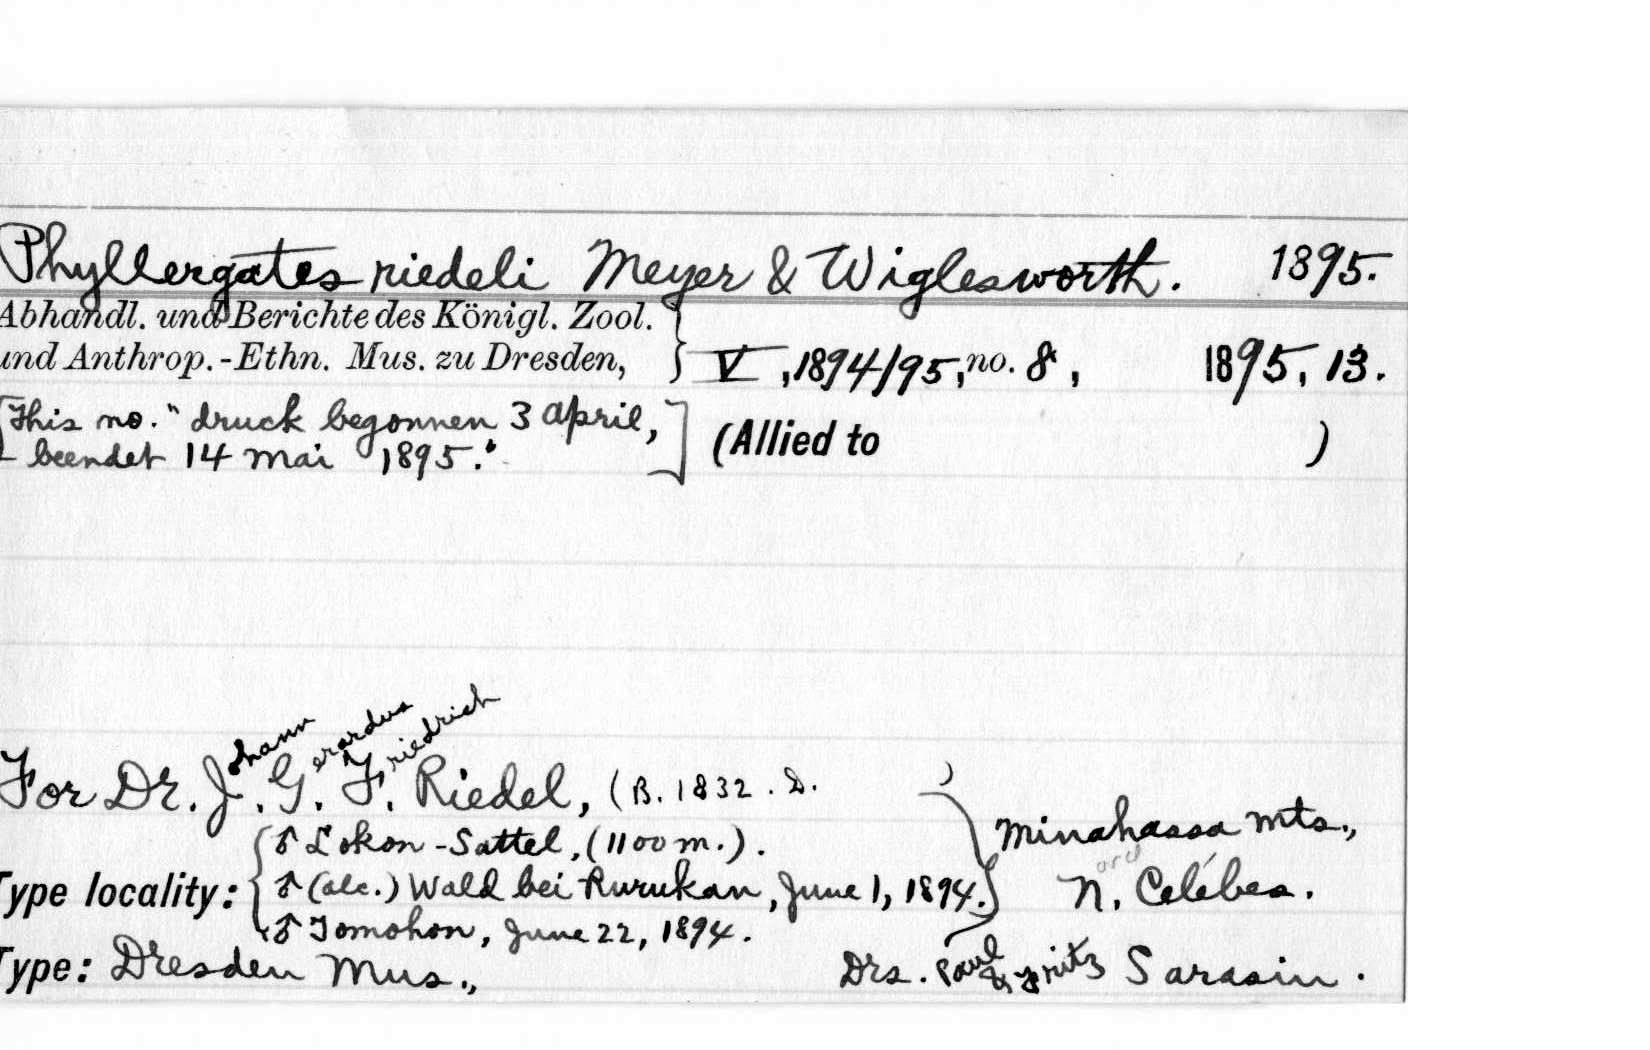 Phyllergates riedeli Meyer & Wiglesworth. 1895.
Abhandl. und Berichte des Königl. Zool.
und Anthrop.-Ethn. Mus. zu Dresden, V, 1894/95, no. 8, 1895, 13.
[This no. "druck begonnen 3 April,
beendet 14 Mai 1895."] (Allied to )
For Dr. Johann Gerardus Friedrich Riedel, (B. 1832. D. )
♂ Lokon-Sattel, (1100 m.). Minahassa mts.,
Type locality: ♂ (alc.) Wald bei Rurukan, June 1, 1894. N. Celébes.
♂ Tomohon, June 22, 1894.
Type: Dresden Mus., Drs. Paul & Fritz Sarasin.